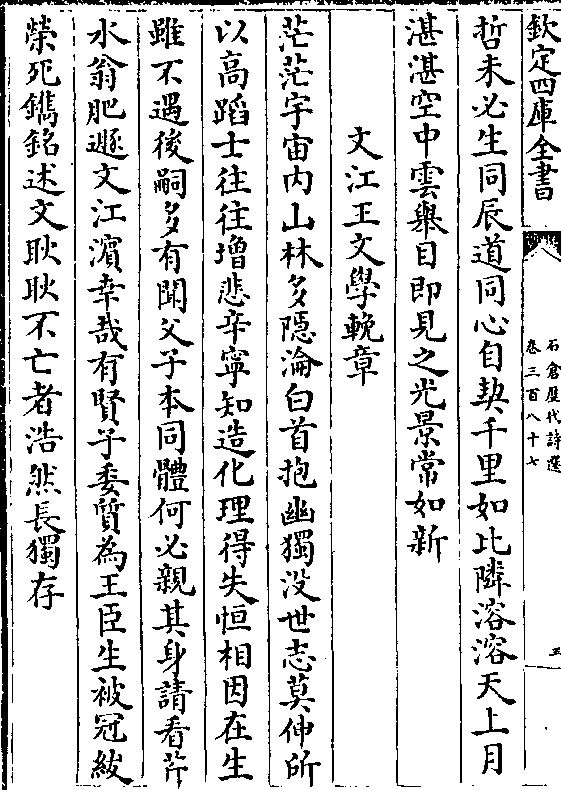 欽定四庫全書
石倉歷代詩選
卷三百八十七
五
哲未必生同辰道同心自契千里如比隣溶溶天上月
湛湛空中雲舉目即見之光景常如新
文江王文學輓章
茫茫宇宙内山林多隱淪白首抱幽獨没世志莫伸所
以高蹈士往往增悲辛寧知造化理得失恒相因在生
雖不遇後嗣多有聞父子本同體何必親其身請看芹
水翁肥遯文江濵幸哉有賢子委質為王臣生被冠紱
榮死鐫銘述文耿耿不亡者浩然長獨存